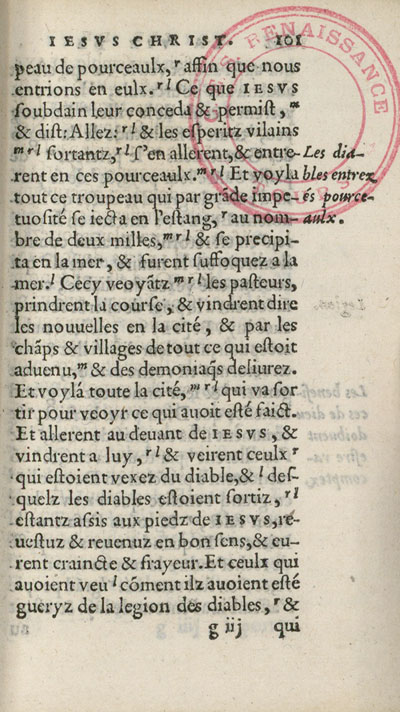 IESVS CHRIST. 101
peau de pourceaulx, r affin que nous
entrions en eulx. r l Ce que IESVS
soubdain leur conceda & permist, m
& dist: Allez: r l & les esperitz vilains
m r l sortantz, r l s'en allerent, & entre-
rent en ces pourceaulx. m r l Et voyla
tout ce troupeau qui par grāde impe-
tuosité se iecta en l'estang, r au nom-
bre de deux milles, m r l & se precipi-
ta en la mer, & furent suffoquez a la
mer. l Cecy veoyātz m r l les pasteurs,
prindrent la course, & vindrent dire
les nouuelles en la cité, & par les
chāps & villages de tout ce qui estoit
aduenu, m & des demoniaq̃s deliurez.
Et voylá toute la cité, m r l qui va sor
tir pour veoyr ce qui auoit esté faict.
Et allerent au deuant de IESVS, &
vindrent a luy, r l & veirent ceulx r
qui estoient vexez du diable, & l des-
quelz les diables estoient sortiz, r l
estantz assis aux piedz de IESVS, re-
uestuz & reuenuz en bon sens, & eu-
rent craincte & frayeur. Et ceulx qui
auoient veu l cōment ilz auoient esté
gueryz de la legion des diables, r &
g iij qui
Les dia-
bles entrez
és pource-
aulx.
RENAISSANCE